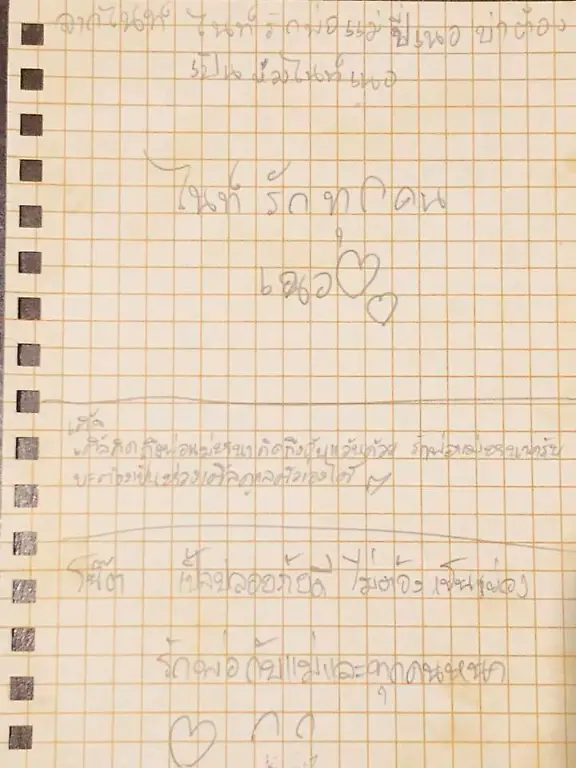 จากไนท์ ไนท์รักพ่อแม่ พี่เนอ บ่าต้อง
เป็นห่วงไนท์เนอ
ไนท์ รัก ทุกคน
เนอ
เติ้ล
เติ้ลคิดถึงพ่อแม่ คิดถึง ด้วย รักพ่อแม่ ครับ
บะต้องเป็นห่วงเติ้ลดูแลตัวเองได้
โน๊ต ปลอดภัยดี ไม่ต้องเป็นห่วง
รักพ่อกับแม่และทุกคนหนา